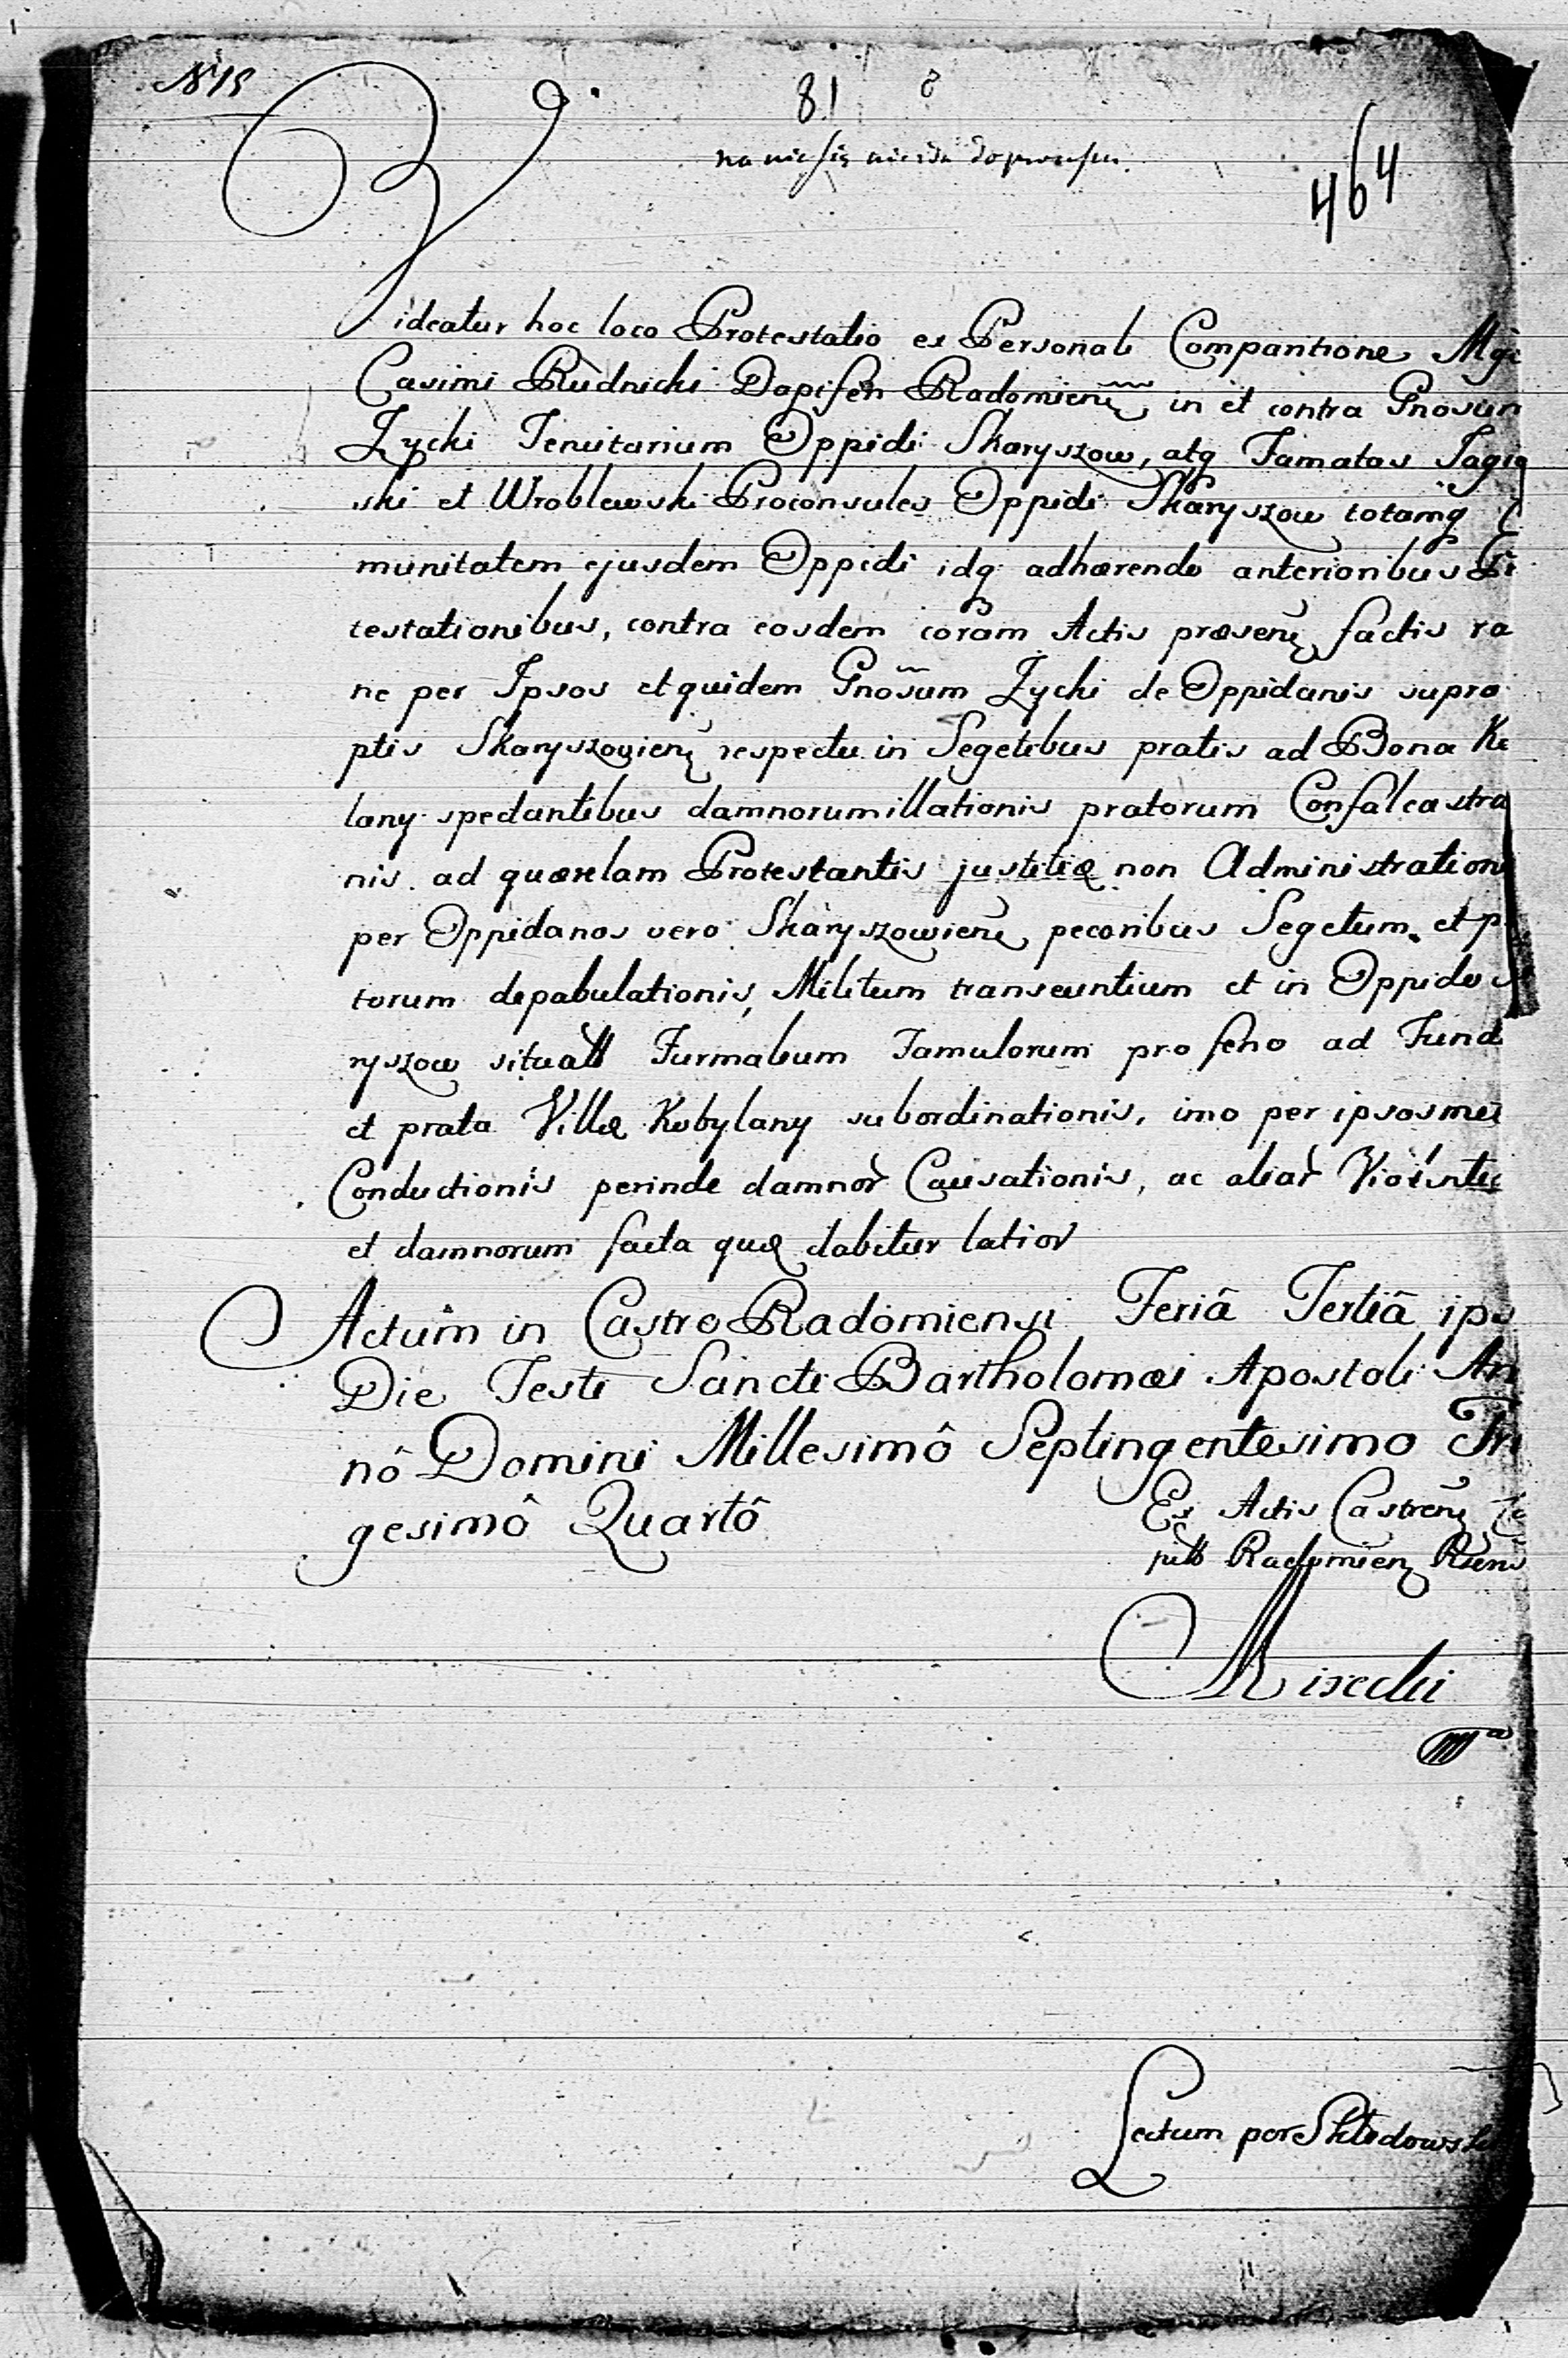 N 15
81
464
Videatur hoc loco Protestatio ex Personali Comparitione Mgci
Casimi Rudnicki Dapiferi Radomien in et contra Gnosum
Zycki Tenutarium Oppidi Skaryszow, atq Famatos Jagie
ski et Wroblewski Proconsules Oppidi Skaryszow totamq
munitatem ejusdem Oppidi idq adhærendo anterioribus
testationibus, contra eosdem coram Actis præsen factis ra
ne per Ipsos et quidem Gnosum Zycki de Oppidanis supra
ptis Skaryszowien respectu in Segetibus pratis ad Bona Ko
lany spectantibus damnorum illationis pratorum Confalcastra
nis ad quærelam Protestantis justitiæ non Administration
per Oppidanos vero Skaryszowien pecoribus Segetum et p
torum depabulationis, Militum transeuntium et in Oppido
ryszow situatt Furmalium Famulorum pro feno ad Fund
et prata Villæ Kobylany subordinationis, imo per ipsosmet
Conductionis perinde damnor Causationis, ac aliar Violentie
et damnorum facta quæ dabitur latior
Actum in Castro Radomiensi Feriâ Tertiâ ips
Die Festi Sancti Bartholomæi Apostoli An
nô Domini Millesimô Septingentesimo Tri
gesimô Quartô
Ex Actis Castren
pitt Radomien
Mirecki
Lectum per Skłodowski